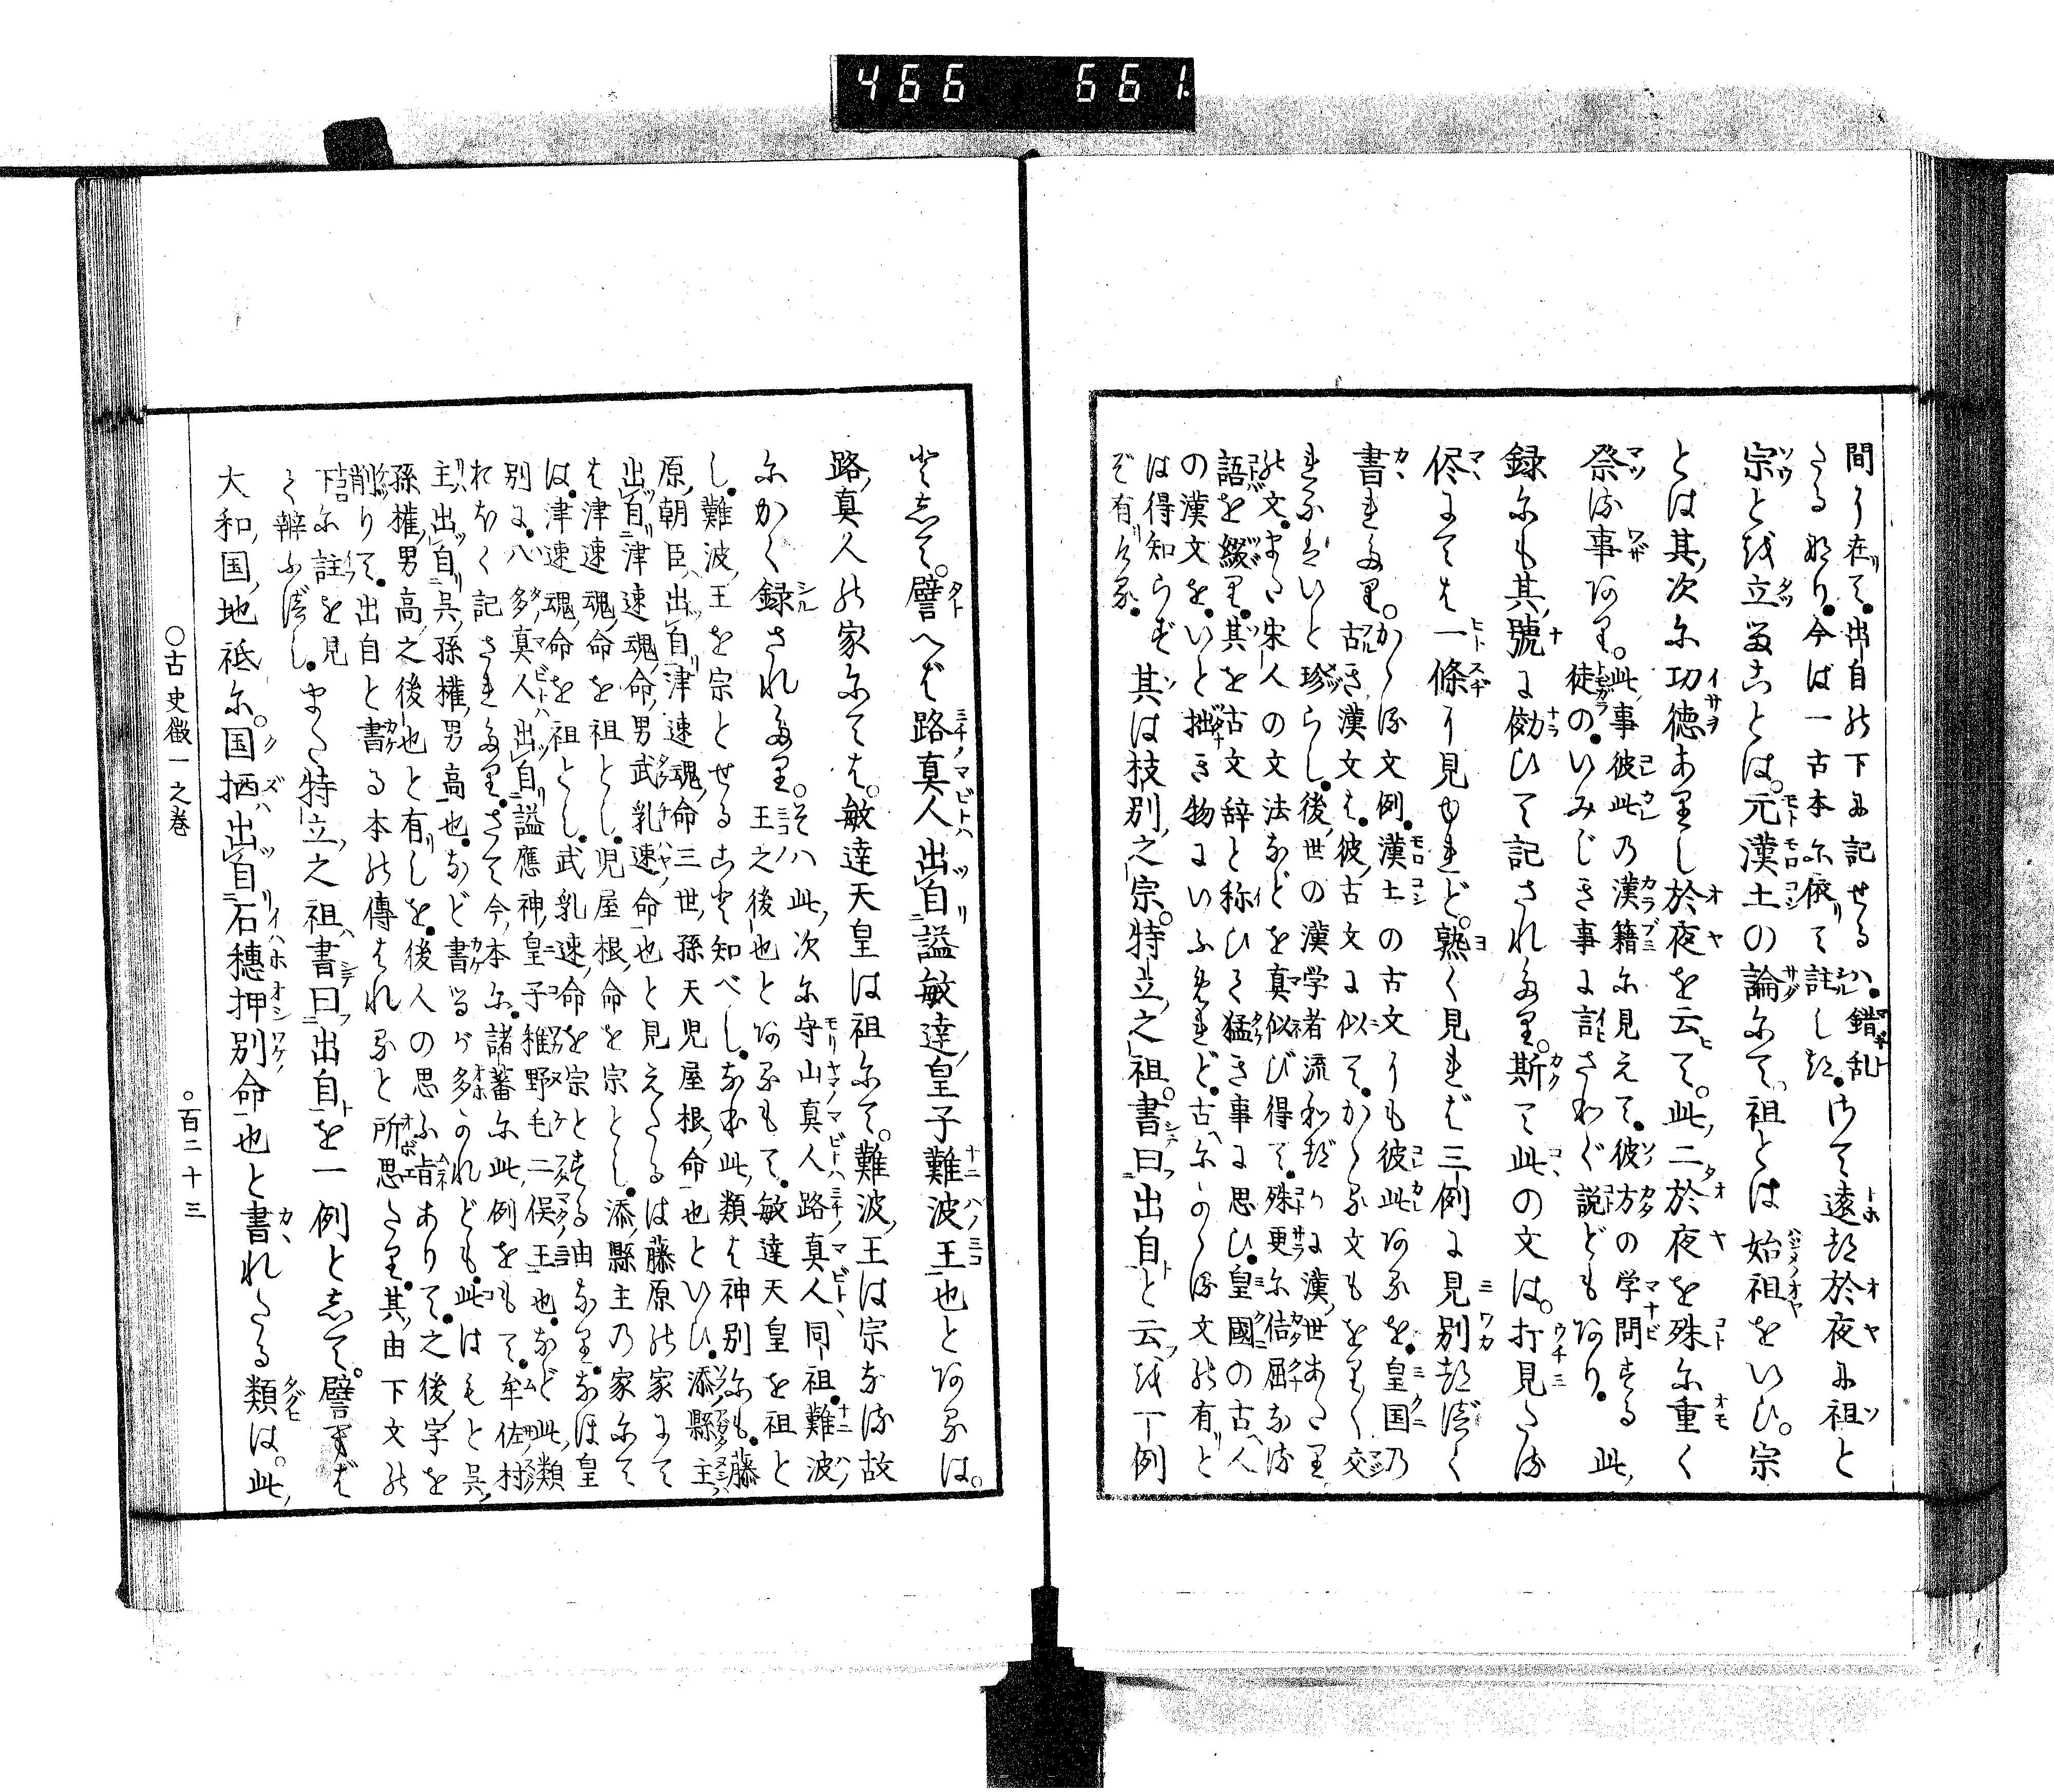 466 661.
間に在て。出自の下に記せるハ。錯乱
たる如り。今ば一古本に依て註しぬ。さて遠き於夜に祖と
宗とを立ることは。元漢土の論にて、祖とは始祖をいひ。宗
とは其次に功徳ありし於夜を云て。此二於夜を殊に重く
祭る事なり。此事彼此の漢籍に見えて。彼方の学問する
徒の。いみじき事に言さわぐ説どもあり。此
録にも其號に効ひて記されたり。斯て此の文は。打見たる
侭にては一條に見ゆれど。熟く見れば三例に見別べく
書れたり。かゝる文例。漢土の古文にも彼此あるを。皇国の
古き漢文は。彼古文に似て。かゝる文もをりく交
れるはいと珍らし。後世の漢学者流わづかに漢世あたり
の文。また宋人の文法などを真似び得て。殊更に佶屈なる
語を綴り。其を古文辞と称ひて猛き事に思ひ。皇國の古人
の漢文を。いと拙き物にいふめれど。古にかゝる文の有と
は得知らず
ぞ有ける。
其は枝別之宗。特立之祖。書曰出自と云を一例
として。譬へば路真人出自諡敏達皇子難波王也とあるは。
路真人の家にては。敏達天皇は祖にて。難波王は宗なる故
にかく録されたり。そハ此次に守山真人路真人同祖。難波
王之後也とあるもて。敏達天皇を祖と
し。難波王を宗とせること知べし。なほ此類は神別にも。藤
原朝臣出自津速魂命三世孫天児屋根命也といひ。添縣主
出自津速魂命男武乳速命也と見えたるは藤原の家にて
は津速魂命を祖とし。児屋根命を宗とし。添縣主の家にて
は。津速魂命を祖とし。武乳速命を宗とせる由なり。なほ皇
別に。八多真人出自諡應神皇子稚野毛二俣王也。など此類
おほく記されたり。さて今本に。諸蕃に此例をもて。牟佐村
主出自呉孫權男高也。など書るが多かれども。此はもと呉
孫權男高之後也と有しを。後人の思ふ旨ありて。之後字を
削りて。出自と書る本の傳はれると所思たり。其由下文の
下に註を見
て辨ふべし。
また特立之祖書曰出自を一例として。譬へば
大和国地祇に。国栖出自石穂押別命也と書れたる類は。此
○古史徴一之巻
○百二十三